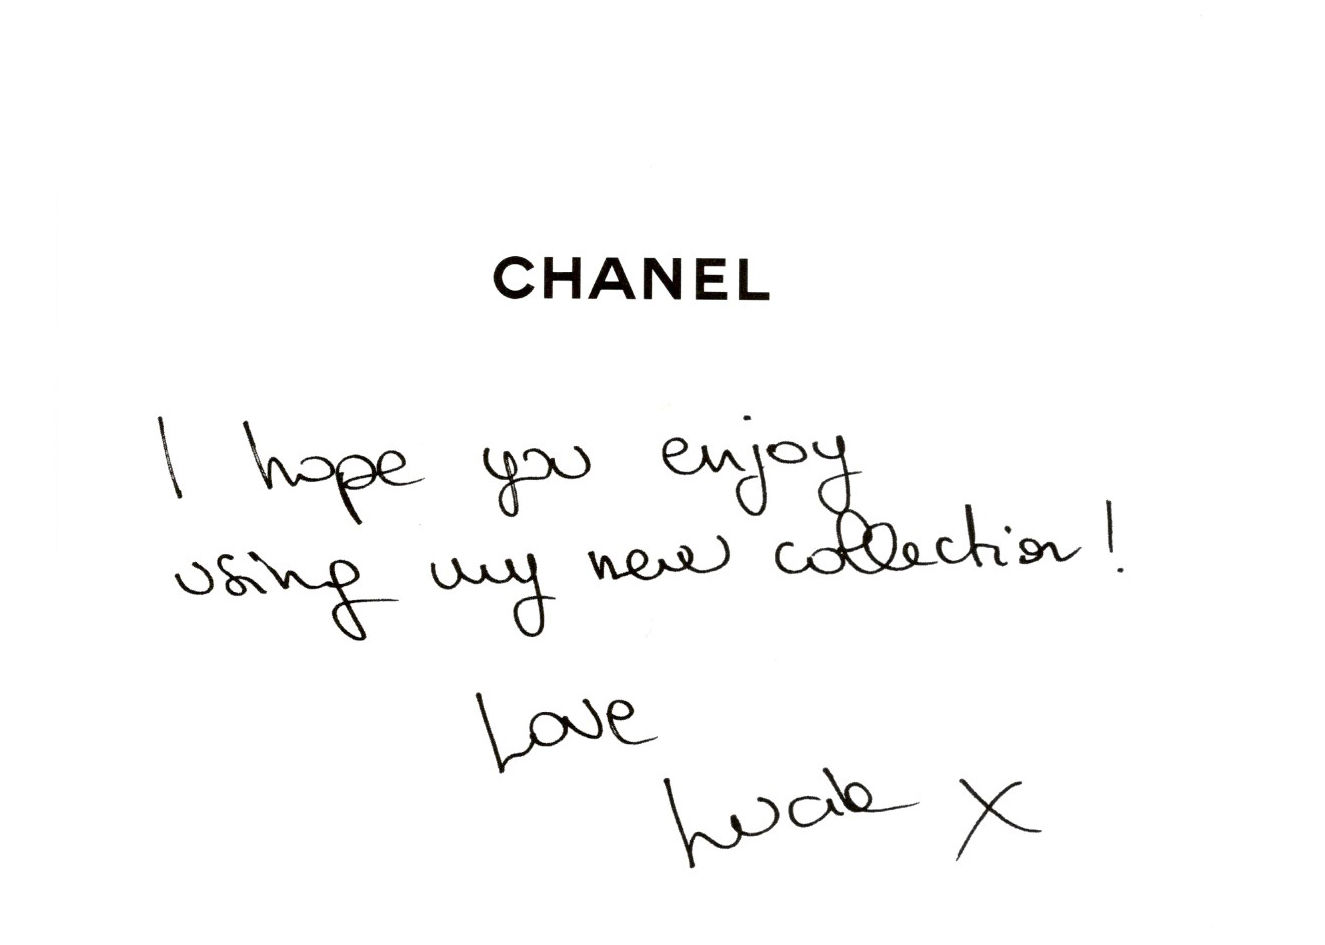 CHANEL
I hope you enjoy
using my new collection!
Love
Lucia x